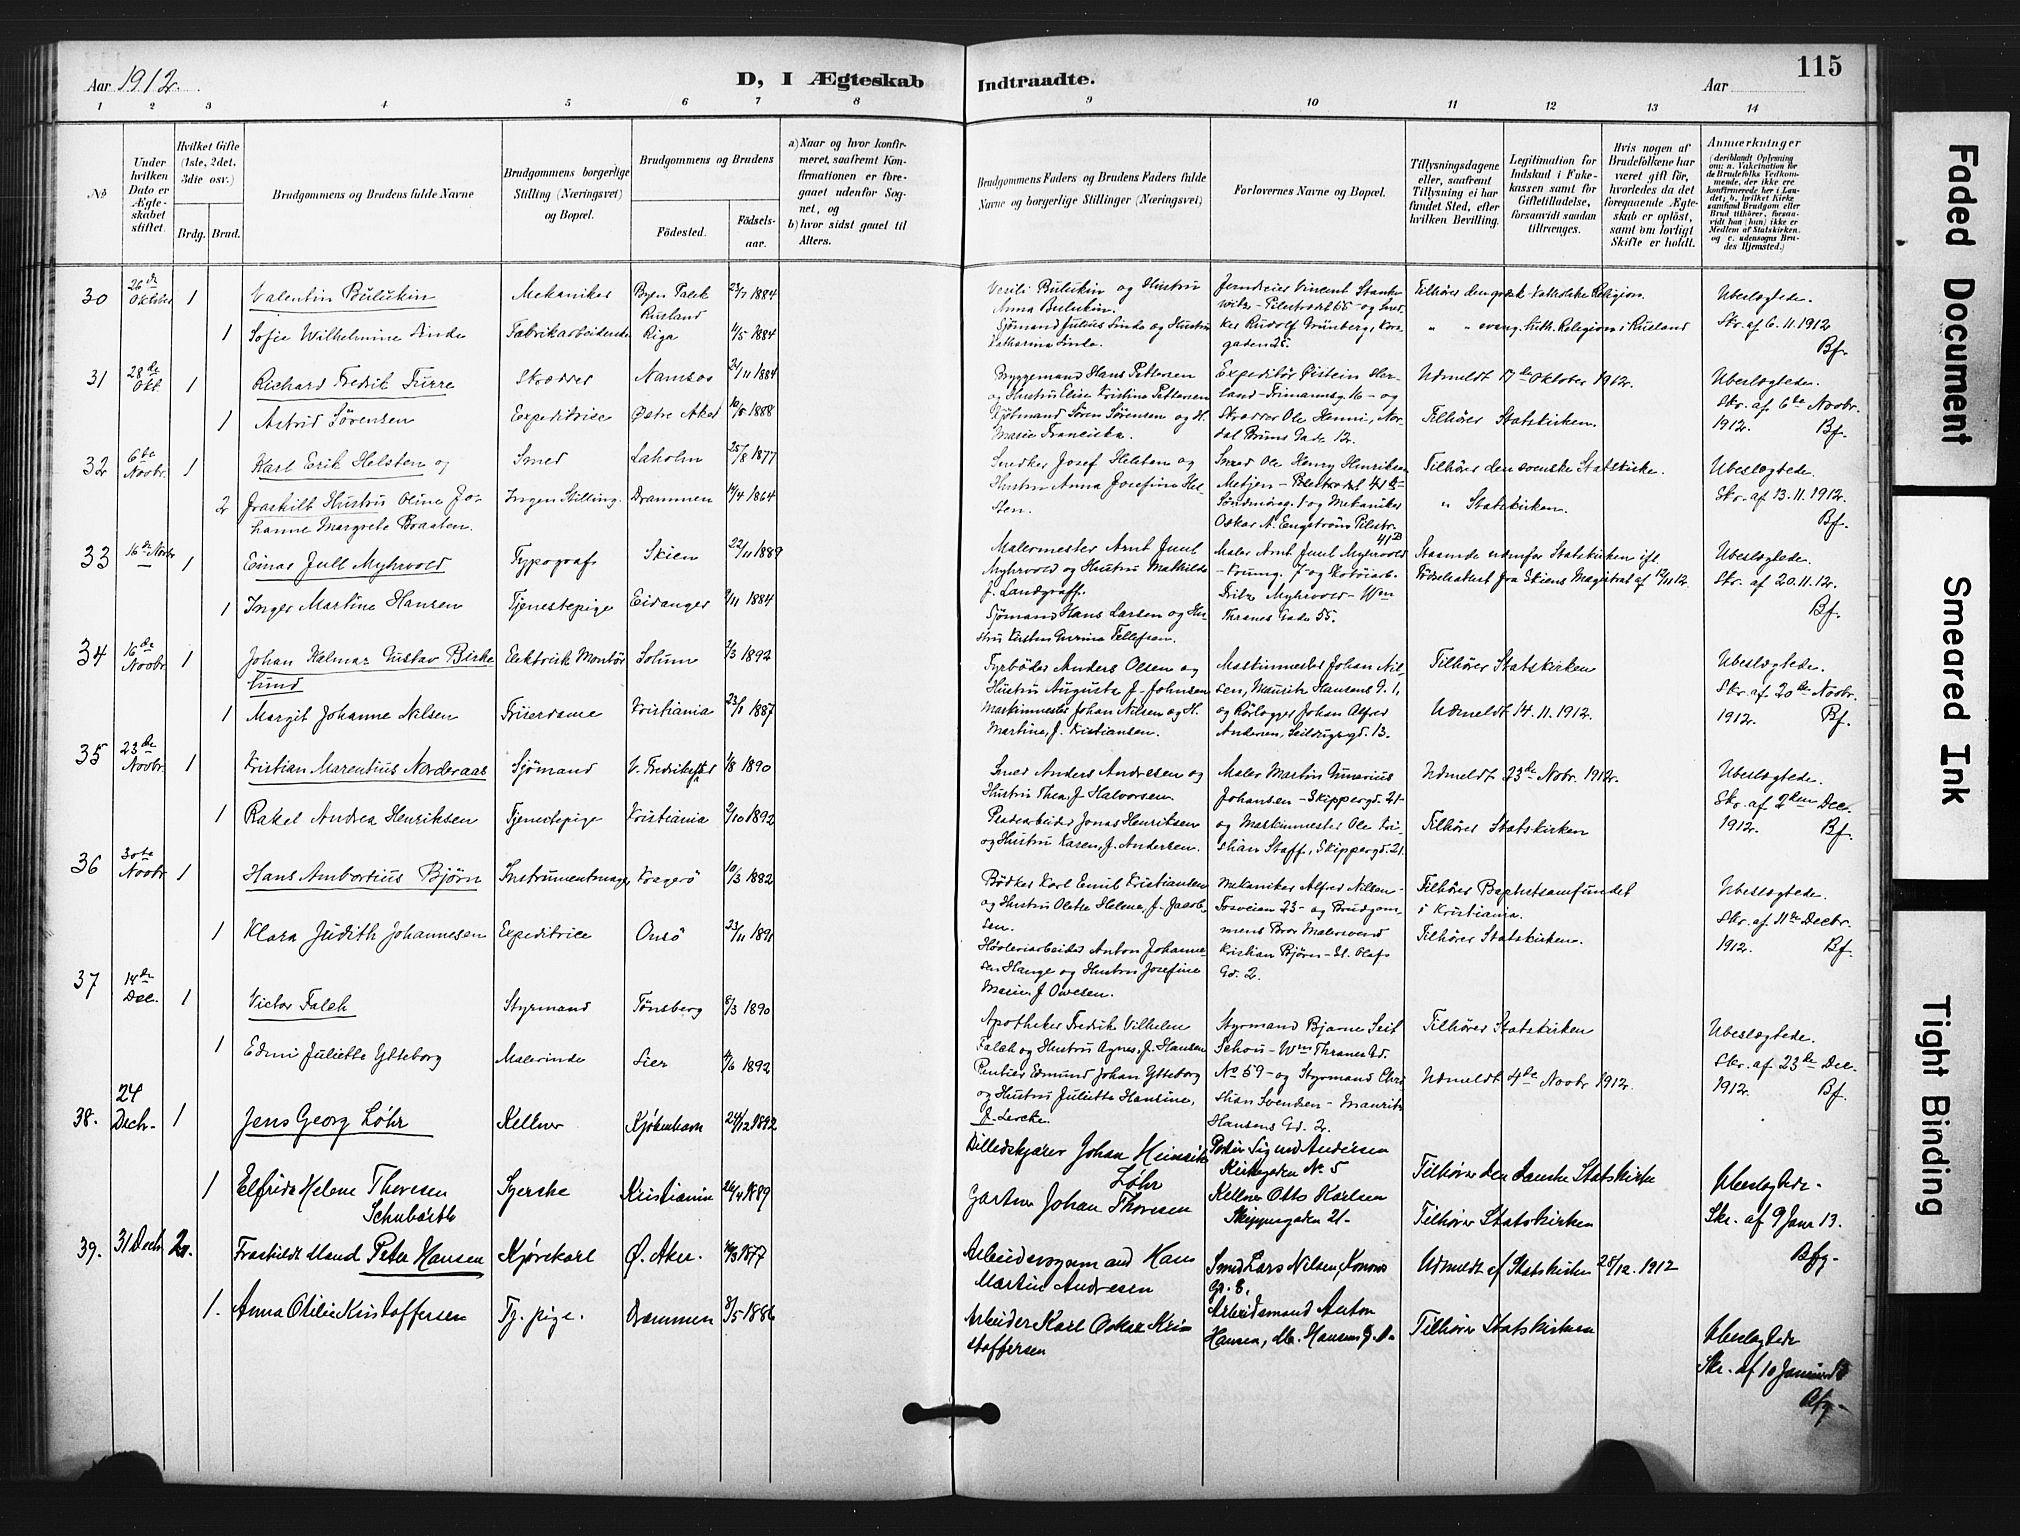 Aar 1912.
D, I Ægteskab
Indtraadte.
Aar
115
1 2 3 4 5 6 7 8 9 10 11 12 13 14
No
Under hvilken Dato er Ægteskabet stiftet.
Hvilket Gifte (1ste, 2det, 3die osv.)
Brdg. Brud.
Brudgommens og Brudens fulde Navne
Brudgommens borgerlige Stilling (Næringsvei) og Bopæl.
Brudgommens og Brudens
Födested.
Födselsaar.
a) Naar og hvor konfirmeret, saafremt Konfirmationen er foregaaet udenfor Sognet, og
b) hvor sidst gaaet til Alters.
Brudgommens Faders og Brudens Faders fulde Navne og borgerlige Stillinger (Næringsvei)
Forlovernes Navne og Bopæl.
Tillysningsdagene eller, saafremt Tillysning ei har fundet Sted, efter hvilken Bevilling.
Legitimation for Indskud i Enkekassen samt for Giftetilladelse, forsaavidt saadan tiltrænges.
Hvis nogen af Brudefolkene har været gift før, hvorledes da det foregaaende Ægteskab er oplöst, samt om lovligt Skifte er holdt.
Anmærkninger
(deriblandt Oplysning om: a. Vakcination for de Brudefolks Vedkommende, der ikke ere konfirmerede her i Landet; b. hvilket Kirkesamfund Brudgom eller Brud tilhörer, forsaavidt han (hun) ikke er Medlem af Statskirken. og c. udensogns Brudes Hjemsted.)
30 26de Oktober 1 Valentin Bulukin Mekaniker Byen Palek Rusland 23/7 1884
Vesili Bulukin og Hustru Anna Bulukin.
Tilhører den græsk-katholske Religion.
Ubeslægtede.
Skr. af 6.11.1912
Bf.
1 Sofie Wilhelmine Linde Fabrikarbeiderske Riga 4/5 1884
Sjømand Julius Linde og Hustru Katharina Linde.
ker Rudolf Grünberg, Korsgaden 25.
" " evang. luth. Religion i Rusland
31 28de Okt. 1 Richard Fredrik Furre Skrædder Namsos 24/11 1884
Byggemand Hans Pettersen og Hustru Elise Kristine Pettersen
Expeditør Øistein Herland - Frimannsg. 16 - og
Udmeldt 17de Oktober 1912.
Ubeslægtede.
Skr. af 6te Novbr. 1912. Bf.
1 Astrid Sørensen Expeditrice Østre Aker 10/5 1888
Kjøbmand Søren Sørensen og H. Marie Franciska.
Skrædder Ole Henri, Nordal Bruns Gade 12.
Tilhører Statskirken.
32 6te Novbr. 1 Karl Erik Helsten og Smed Laholm 25/8 1877
Snedker Josef Helsten og Hustru Anna Josefine Helsten.
Smed Ole Henry Henriksen
Tilhører den svenske Statskirke.
Ubeslægtede.
Skr. af 13.11.1912.
Bf.
2 Fraskilt Hustru Oline Johanne Margrete Braaten. Ingen Stilling. Drammen 14/4 1864
og Mekaniker Oskar A. Engstrøm Pilestr. 41B
" Statskirken.
33 16de Novbr 1 Einar Jull Myhrvold Typograf Skien 22/11 1889
Malermester Arnt Juul Myhrvold og Hustru Mathilde J. Landgraff.
Maler Arnt Juul Myhrvold
Staaende udenfor Statskirken ifl. Fødselsattest fra Skiens Magistrat af 12/11 12.
Ubeslægtede.
Skr. af 20.11.12.
Bf.
1 Inger Martine Hansen Tjenestepige Eidanger 2/11 1884
Sjømand Hans Larsen og Hustru Kirsten Gurina Tellefsen.
Fritz Myhrvold - Wm Thranes Gade 55.
34 16de Novbr. 1 Johan Halmar Gustav Birkelund Elektrisk Montør Solum 2/3 1892
Fyrbøder Anders Olsen og Hustru Augusta J. Johnsen
Maskinmester Johan Nilsen, Mauritz Hansens G. 1,
Tilhører Statskirken
Ubeslægtede.
Skr. af 20de Novbr. 1912. Bf.
1 Margit Johanne Nilsen Friserdame Kristiania 23/1 1887
Maskinmester Johan Nilsen og H. Martine, J. Kristiansen.
og Rørlægger Johan Alfred Andersen, Seildugsgd. 13.
Udmeldt 14.11.1912.
35 23de Novbr. 1 Kristian Marentius Norderaas Sjømand V. Fredrikstad 1/8 1890
Smed Anders Andresen og Hustru Thea, J. Halvorsen.
Maler Martin Gunerius Johansen - Skippergd. 21 -
Udmeldt 23de Nobr. 1912.
Ubeslægtede.
Skr. af 2den Dec. 1912. Bf.
1 Rakel Andrea Henriksen Tjenestepige Kristiania 2/10 1892
Pladearbeider Jonas Henriksen og Hustru Karen, J. Andersen.
og Maskinmester Ole Kristian Staff, Skippergd. 21.
Tilhører Statskirken
36 30te Novbr. 1 Hans Ambortius Bjørn Instrumentmager Kragerø 10/3 1882
Bødker Karl Emil Kristiansen og Hustru Oletta Helene, J. Jacobsen.
Mekaniker Alfred Nilsen - Fosveien 23 - og Brudgommens Bror Malersvend Kristian Bjørn - St. Olafs Gd. 2.
Tilhører Baptistsamfundet i Kristiania.
Ubeslægtede.
Skr. af 11te Decbr. 1912. Bf.
1 Klara Judith Johannesen Expeditrice Onsø 23/11 1891
Høvleriarbeider Anton Johannesen Hauge og Hustru Josefine Marie, J. Ovesen.
Tilhører Statskirken.
37 14de Dec. 1 Victor Falch Styrmand Tønsberg 8/3 1890
Apotheker Fredrik Vilhelm Falch og Hustru Agnes, J. Hansen
Styrmand Bjarne Seif Schou - Wm Thranes Gd. No 59 - og Styrmand Christian Svendsen - Mauritz Hansens Gd. 2.
Tilhører Statskirken
Ubeslægtede.
Skr. af 23de Dec. 1912. Bf.
1 Edmi Juliette Ytteborg Malerinde Lier 4/6 1892
Rentier Edmund Johan Ytteborg og Hustru Juliette Hansine, J. Lercke.
Udmeldt 4de Novbr 1912.
38. 24 Decb. 1 Jens Georg Løhr Kellner Kjøbenhavn 24/12 1892
Billedskjærer Johan Heinrich Løhr
Portier Sigurd Andersen Kirkegaden No 5
Tilhører den danske Statskirke
Ubeslægtede.
Skr. af 9 Janr 13.
Bfg.
1 Elfrida Helene Thoresen Schubarth Syerske Kristiania 26/4 1889
Gartner Johan Thoresen
Kellner Otto Karlsen Skippergaden 21.
Tilhører Statskirken
39. 31 Decb. 2. Fraskildt Mand Peter Hansen Kjørekarl Ø. Aker. 1877
Arbeidsformand Hans Martin Andresen
Smed Lars Nilsen,
Udmeldt af Statskirken 28/12. 1912
1. Anna Otilie Kristoffersen Tj. pige. Drammen 8/5 1886
Arbeider Karl Oskar Kristoffersen
Arbeidsmand Anton Hansen,
Tilhører Statskirken
Ubeslægtede
Skr. af 10 Januar 13
Bfg.
Faded Document
Smeared Ink
Tight Binding